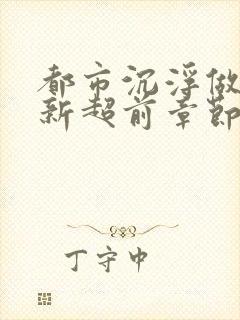 都市沉浮做
新超前章節
丁守中